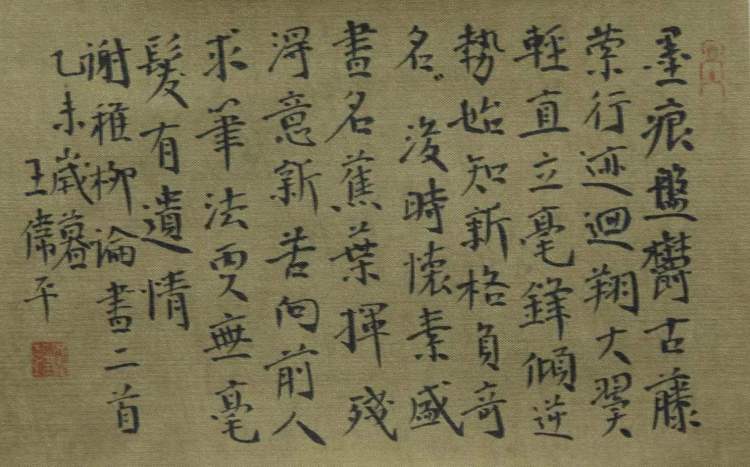 墨痕盤鬱古藤
縈行迹迴翔大翼
輕直立毫鋒傾逆
勢始知新格負奇
名 後時懷素盛
書名蕉葉揮殘
得意新若向前人
求筆法要無毫
髮有遺情
謝稚柳論書二首
乙未歲暮
王偉平